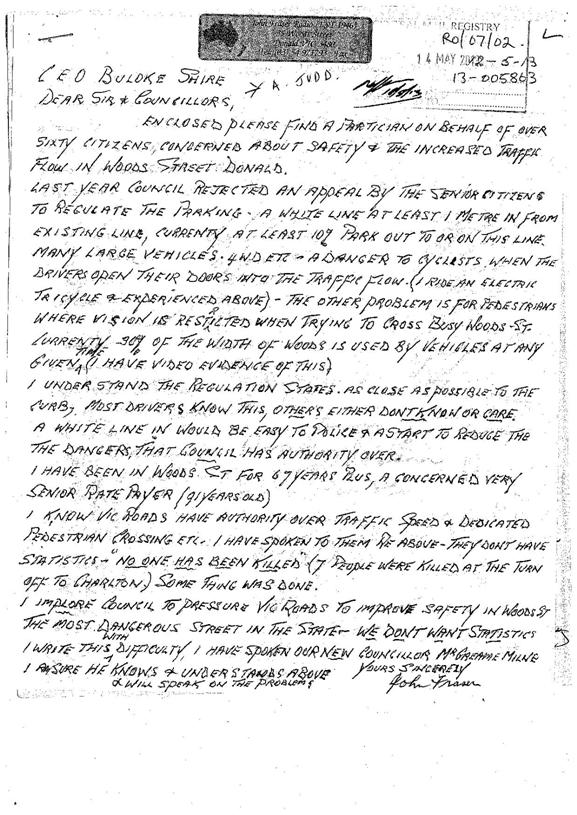 REGISTRY
RO/07/02.
14 MAY 2012-5-13
13-005863
CEO BULOKE SHIRE
A. JUDD.
DEAR SIR & COUNCILLORS,
ENCLOSED PLEASE FIND A PARTICIAN ON BEHALF OF OVER
SIXTY CITIZENS, CONCERNED ABOUT SAFETY & THE INCREASED TRAFFIC
FLOW IN WOODS STREET DONALD.
LAST YEAR COUNCIL REJECTED AN APPEAL BY THE SENIOR CITIZENS
TO REGULATE THE PARKING - A WHITE LINE AT LEAST 1 METRE IN FROM
EXISTING LINE, CURRENTY AT LEAST 10% PARK OUT TO OR ON THIS LINE
MANY LARGE VEHICLES. 4WD ETC - A DANGER TO CYCLISTS WHEN THE
DRIVERS OPEN THEIR DOORS INTO THE TRAFFIC FLOW. (I RIDE AN ELECTRIC
TRICYCLE & EXPERIENCED ABOVE) - THE OTHER PROBLEM IS FOR PEDESTRIANS
WHERE VISION IS WHEN TRYING TO CROSS BUSY WOODS-ST.
CURRENTY 30% OF THE WIDTH OF WOODS IS USED BY VEHICLES AT ANY
GIVEN TIME (I HAVE VIDEO EVIDENCE OF THIS)
I UNDERSTAND THE REGULATION STATES. AS CLOSE AS POSSIBLE TO THE
CURB, MOST DRIVERS KNOW THIS, OTHERS EITHER DONT KNOW OR CARE,
A WHITE LINE IN WOULD BE EASY TO POLICE & A START TO REDUCE THE
THE DANGERS, THAT COUNCIL HAS AUTHORITY OVER.
I HAVE BEEN IN WOODS ST FOR 67 YEARS PLUS, A CONCERNED VERY
SENIOR RATE PAYER (91 YEARS OLD)
I KNOW VIC ROADS HAVE AUTHORITY OVER TRAFFIC SPEED & DEDICATED
PEDESTRIAN CROSSING ETC. I HAVE SPOKEN TO THEM RE ABOVE - THEY DONT HAVE
STATISTICS - "NO ONE HAS BEEN KILLED" (7 PEOPLE WERE KILLED AT THE TURN
OFF TO CHARLTON,) SOME THING WAS DONE.
I IMPLORE COUNCIL TO PRESSURE VIC ROADS TO IMPROVE SAFETY IN WOODS ST
THE MOST DANGEROUS STREET IN THE STATE - WE DONT WANT STATISTICS
I WRITE THIS WITH DIFFICULTY, I HAVE SPOKEN OUR NEW COUNCILLOR MR GREAME MILNE
I AM SURE HE KNOWS & UNDERSTANDS ABOVE
& WILL SPEAK ON THE PROBLEMS
YOURS SINCERELY
John Fraser